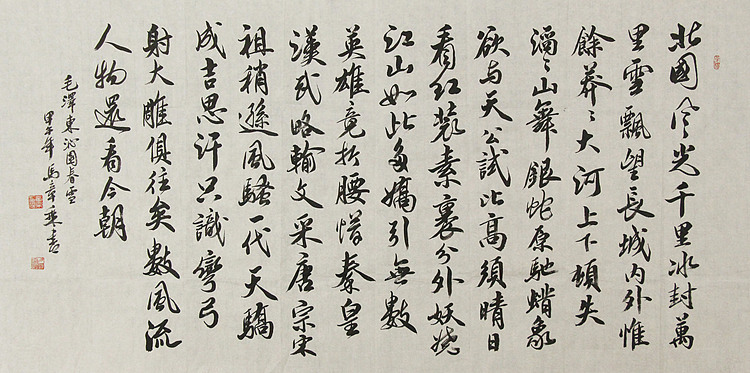 北國风光千里冰封萬
里雪飄望長城内外惟
餘莽〻大河上下頓失
滔〻山舞銀蛇原馳蜡象
欲与天公試比高須晴日
看红裝素裹分外妖娆
江山如此多嬌引無數
英雄竟折腰惜秦皇
漢武略輸文采唐宗宋
祖稍遜風騷一代天驕
成吉思汗只識彎弓
射大雕俱往矣數風流
人物還看今朝
毛澤東沁園春雪
甲午年馬章書